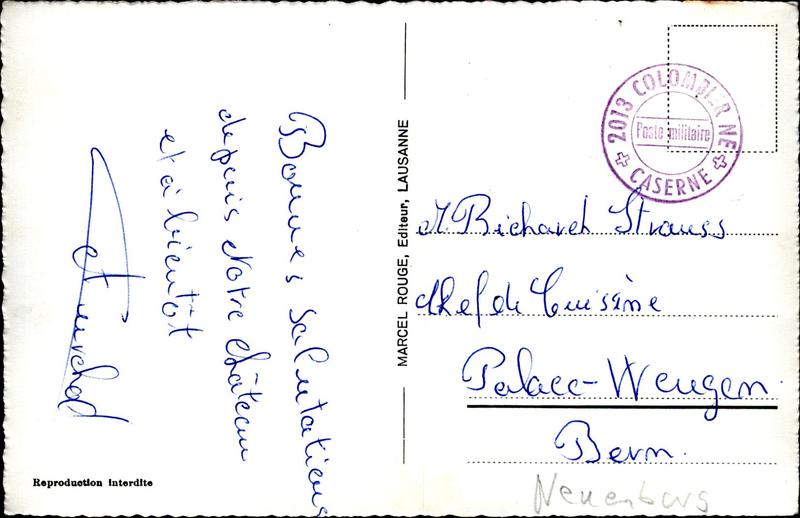 Bonnes salutations
depuis Notre château
et à bientôt
Reproduction interdite
MARCEL ROUGE, Editeur, LAUSANNE
2013 COLOMBIER NE
Poste militaire
CASERNE
M. Richard Strauss
Chef de Cuisine
Palace-Wengen
Bern.
Neuenburg